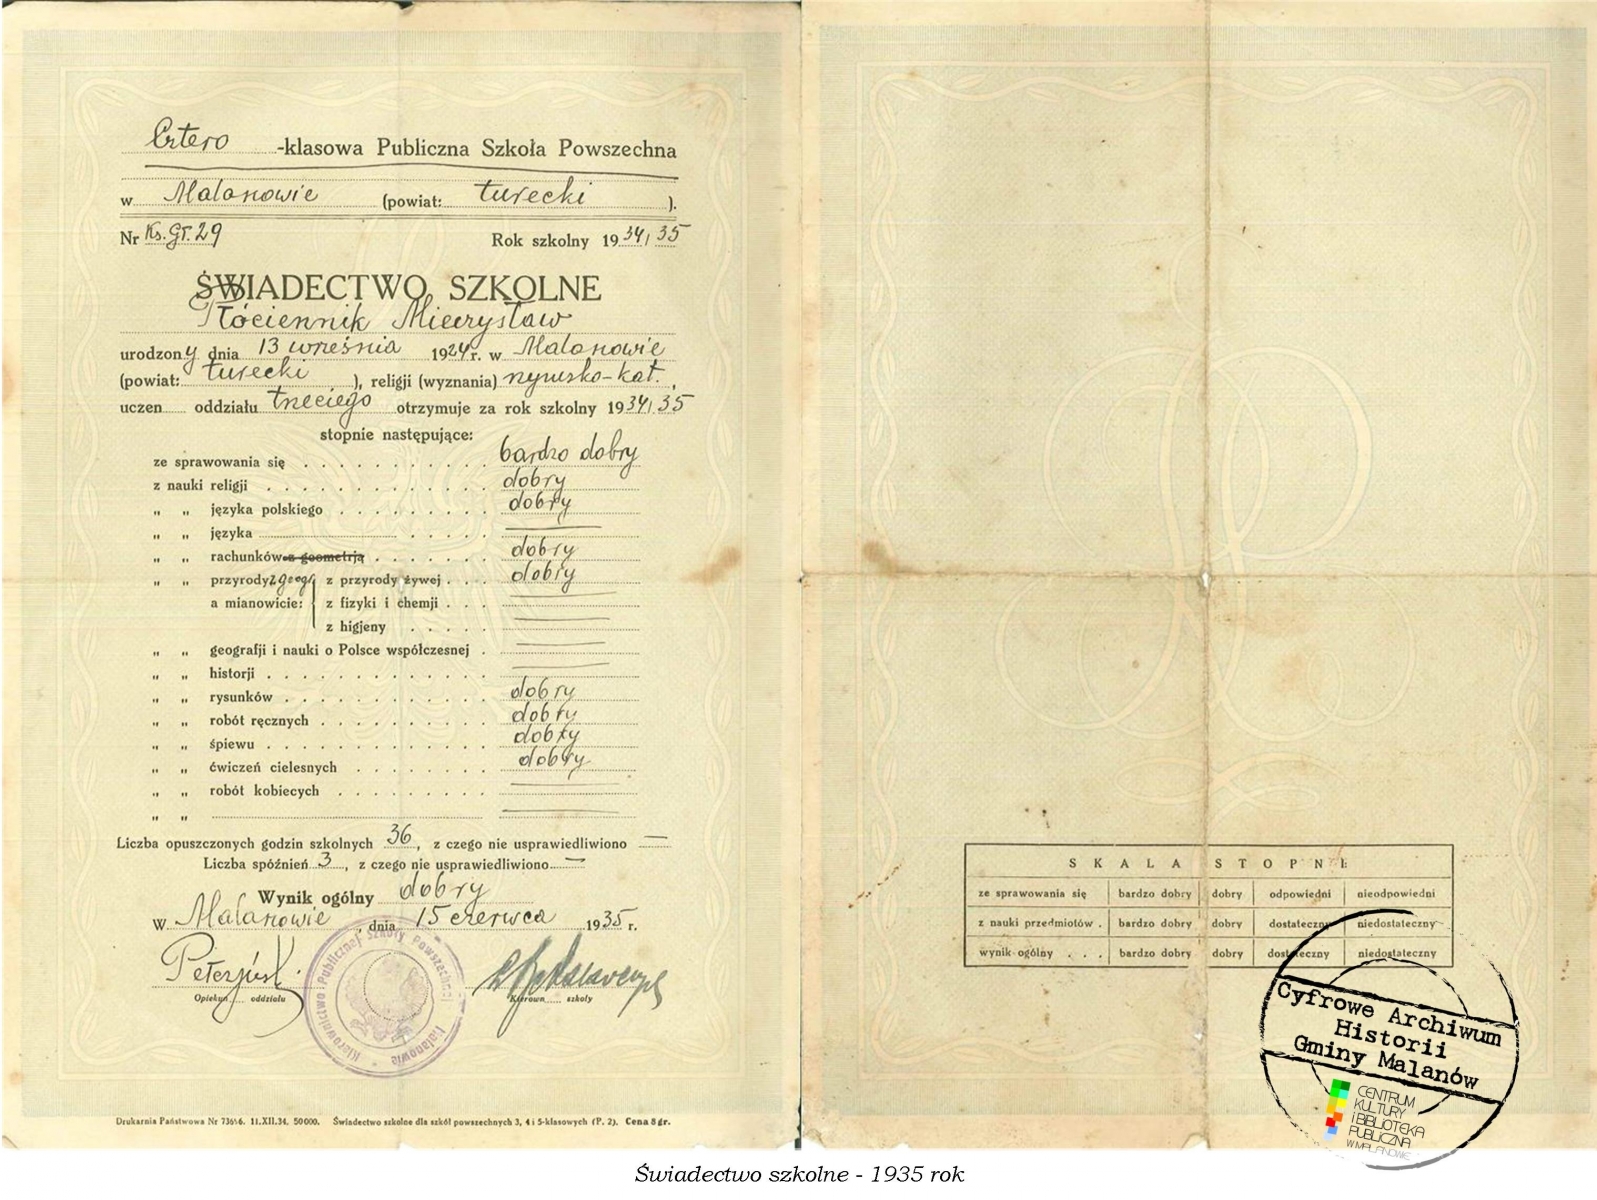 Cztero -klasowa Publiczna Szkoła Powszechna
w Malanowie (powiat: turecki ).
Nr Ks.gł.29 Rok szkolny 1934/35
ŚWIADECTWO SZKOLNE
Płóciennik Mieczysław
urodzony dnia 13 września 1924 r. w Malanowie
(powiat: turecki ), religji (wyznania) rzymsko-kat. ,
uczen oddziału trzeciego otrzymuje za rok szkolny 1934/35
stopnie następujące:
ze sprawowania się bardzo dobry
z nauki religji dobry
„ „ języka polskiego dobry
„ „ języka
„ „ rachunków z geometrją dobry
„ „ przyrody z geogr z przyrody żywej dobry
a mianowicie: z fizyki i chemji
z higjeny
„ „ geografji i nauki o Polsce współczesnej
„ „ historji
„ „ rysunków dobry
„ „ robót ręcznych dobry
„ „ śpiewu dobry
„ „ ćwiczeń cielesnych dobry
„ „ robót kobiecych
„ „
Liczba opuszczonych godzin szkolnych 36, z czego nie usprawiedliwiono —
Liczba spóźnień 3, z czego nie usprawiedliwiono —
Wynik ogólny dobry
W Malanowie, dnia 15 czerwca 1935 r.
Opiekun oddziału Kierown szkoły
Kierownictwo Publicznej Szkoły Powszechnej Malanowie
Drukarnia Państwowa Nr 73646. 11.XII.34. 50000. Świadectwo szkolne dla szkół powszechnych 3, 4 i 5-klasowych (P. 2). Cena 8 gr.
SKALA STOPNI:
ze sprawowania się bardzo dobry dobry odpowiedni nieodpowiedni
z nauki przedmiotów . bardzo dobry dobry dostateczny niedostateczny
wynik ogólny . . . bardzo dobry dobry dostateczny niedostateczny
Cyfrowe Archiwum
Historii
Gminy Malanów
CENTRUM
KULTURY
i BIBLIOTEKA
PUBLICZNA
W MALANOWIE
Świadectwo szkolne - 1935 rok